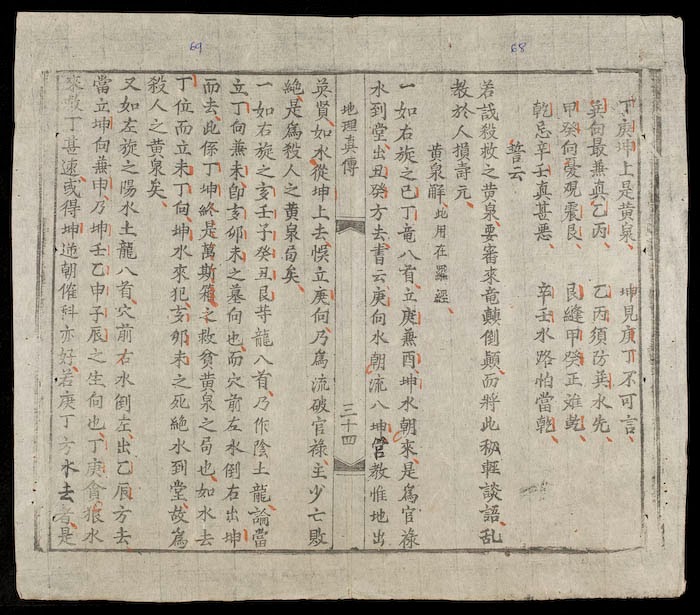 68
丁庚坤上是黃泉、 坤見庚丁不可言、
巽向最羔真乙丙、 乙丙須防巽水先、
甲癸向憂覌震艮、 艮縫甲癸正难乾、
乾忌辛壬真甚悪、 辛壬水路怕當乾、
誓云
若識殺救之黄泉要審來竜顛倒顛、而將此秘輕談語乱
教於人損壽元、
黃泉觧、此用在羅經、
一如右旋之巳丁竜八首、立庚兼酉坤水朝來是爲官祿
水到堂、出丑癸方去、書云庚向水朝流八坤管教惟地出
英賢、如水從坤上去悞立庚向、乃爲流破官祿、主少亡敗
絶、是爲殺人之黄泉局矣、
地理真傳
三十四
69
一如右旋之亥壬子癸丑艮䒭龍八首、乃作陰土龍、論當
立丁向兼未卽亥卯未之墓向也、而穴前左水倒右出坤
而去、此侄丁坤終是萬斯箱之救貧黄泉之局也、如水去
丁位而立未丁向、坤水來犯亥夘未之死絶水到堂、故爲
殺人之黄泉矣、
又如左旋之陽水土龍八首、穴前右水倒左、出乙辰方去
當立坤向兼申、乃坤壬乙申子辰之生向也、丁庚貪狼水
來救丁甚速、或得坤逆朝催科亦好、若庚丁方水去者、是